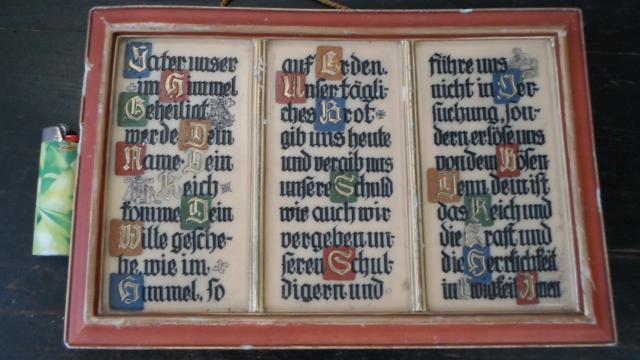 Vater unser
im Himmel
Geheiligt
werde Dein
Name Dein
Reich
komme Dein
Wille gesche-
he, wie im
Himmel, so
auf Erden.
Unser tägli-
ches Brot
gib uns heute
und vergib uns
unsere Schuld
wie auch wir
vergeben un-
seren Schul-
digern und
führe uns
nicht in Ver-
suchung, son-
dern erlöse uns
von dem Bösen
Denn dein ist
das Reich und
die Kraft und
die Herrlichkeit
in Ewigkeit Amen